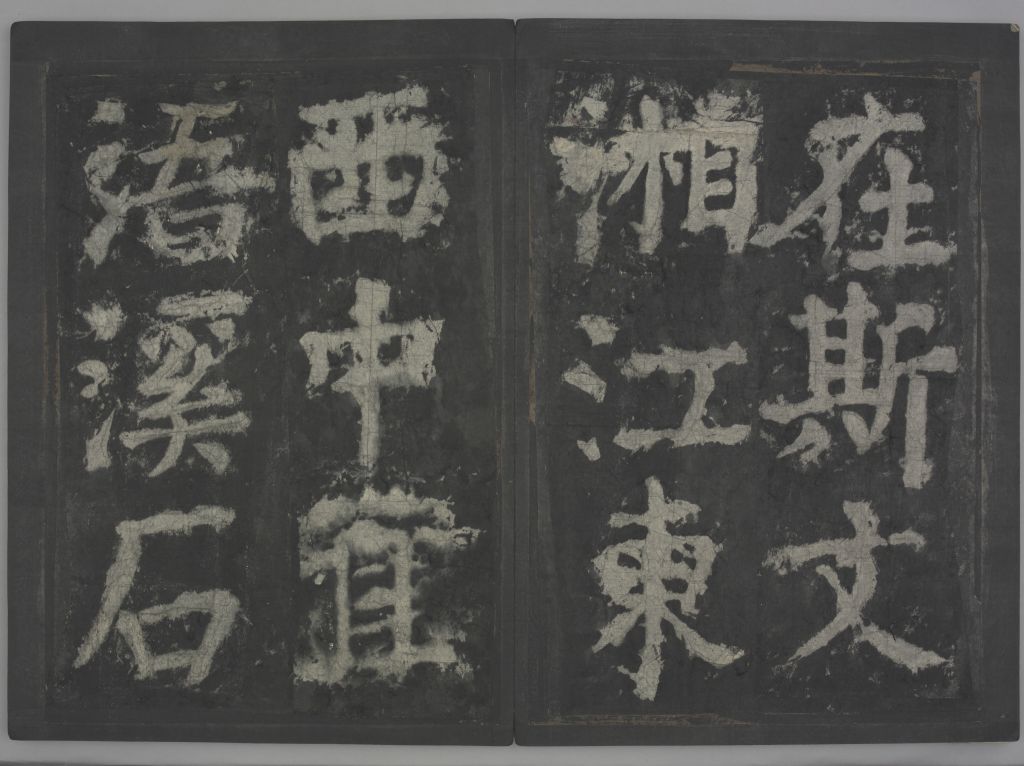 在斯文
湘江東
西中直
浯溪石